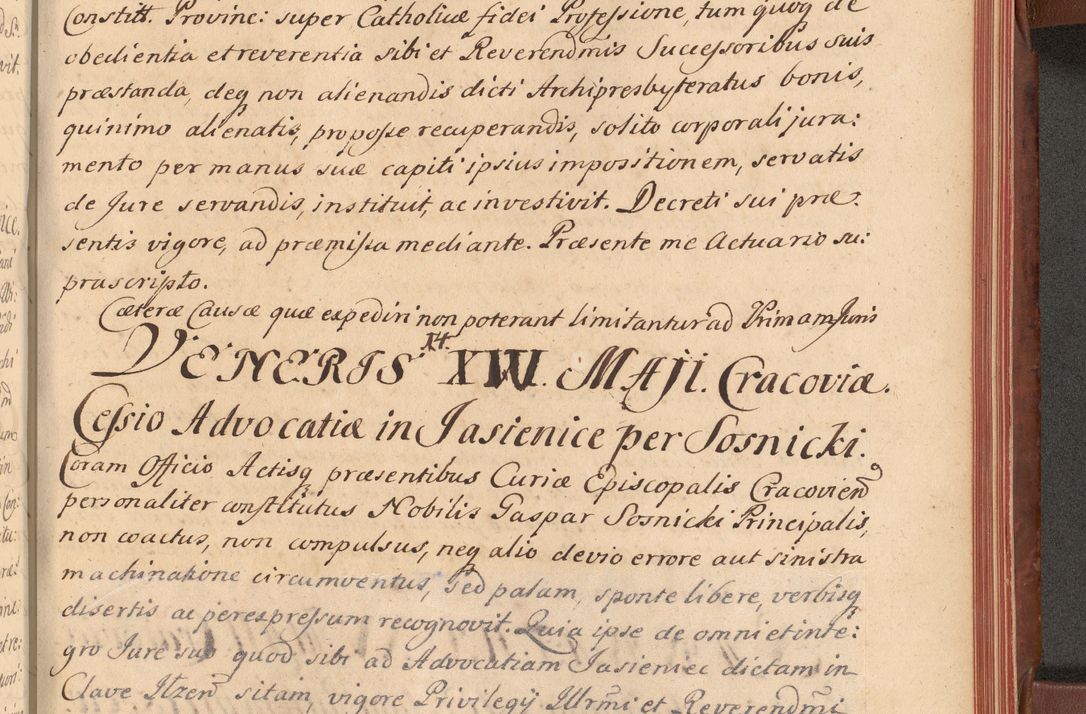 Constitt. Provinc: super Catholicæ fidei Professione, tum quoq de
obedientia et reverentia sibi et Reverendmis Successoribus suis
præstanda, deq non alienandis dicti Archipresbyteratus bonis,
quinimo alienatis, pro posse recuperandis, solito corporali jura:
mento per manus suæ capiti ipsius impositionem, servatis
de Jure servandis, instituit, ac investivit. Decreti sui præ:
sentis vigore, ad præmissa mediante. Præsente me Actuario su:
prascripto.
Cæteræ Causæ quæ expediri non poterant limitantur ad Primam Juris
14.
VENERIS XVI. MAJI. Cracoviæ.
Cessio Advocatiæ in Jasienice per Sosnicki.
Coram Officio Actisq præsentibus Curiæ Episcopalis Cracovien
personaliter constitutus Nobilis Gaspar Sosnicki Principalis,
non coactus, non compulsus, neq alio devio errore aut sinistra
machinatione circumventus, sed palam, sponte libere, verbisq
disertis ac per expressum recognovit. Quia ipse de omni et inte:
gro Jure suo quod sibi ad Advocatiam Jasieniec dictam in
Clave Ilzen sitam, vigore Privilegij Illrmi et Reverendmi